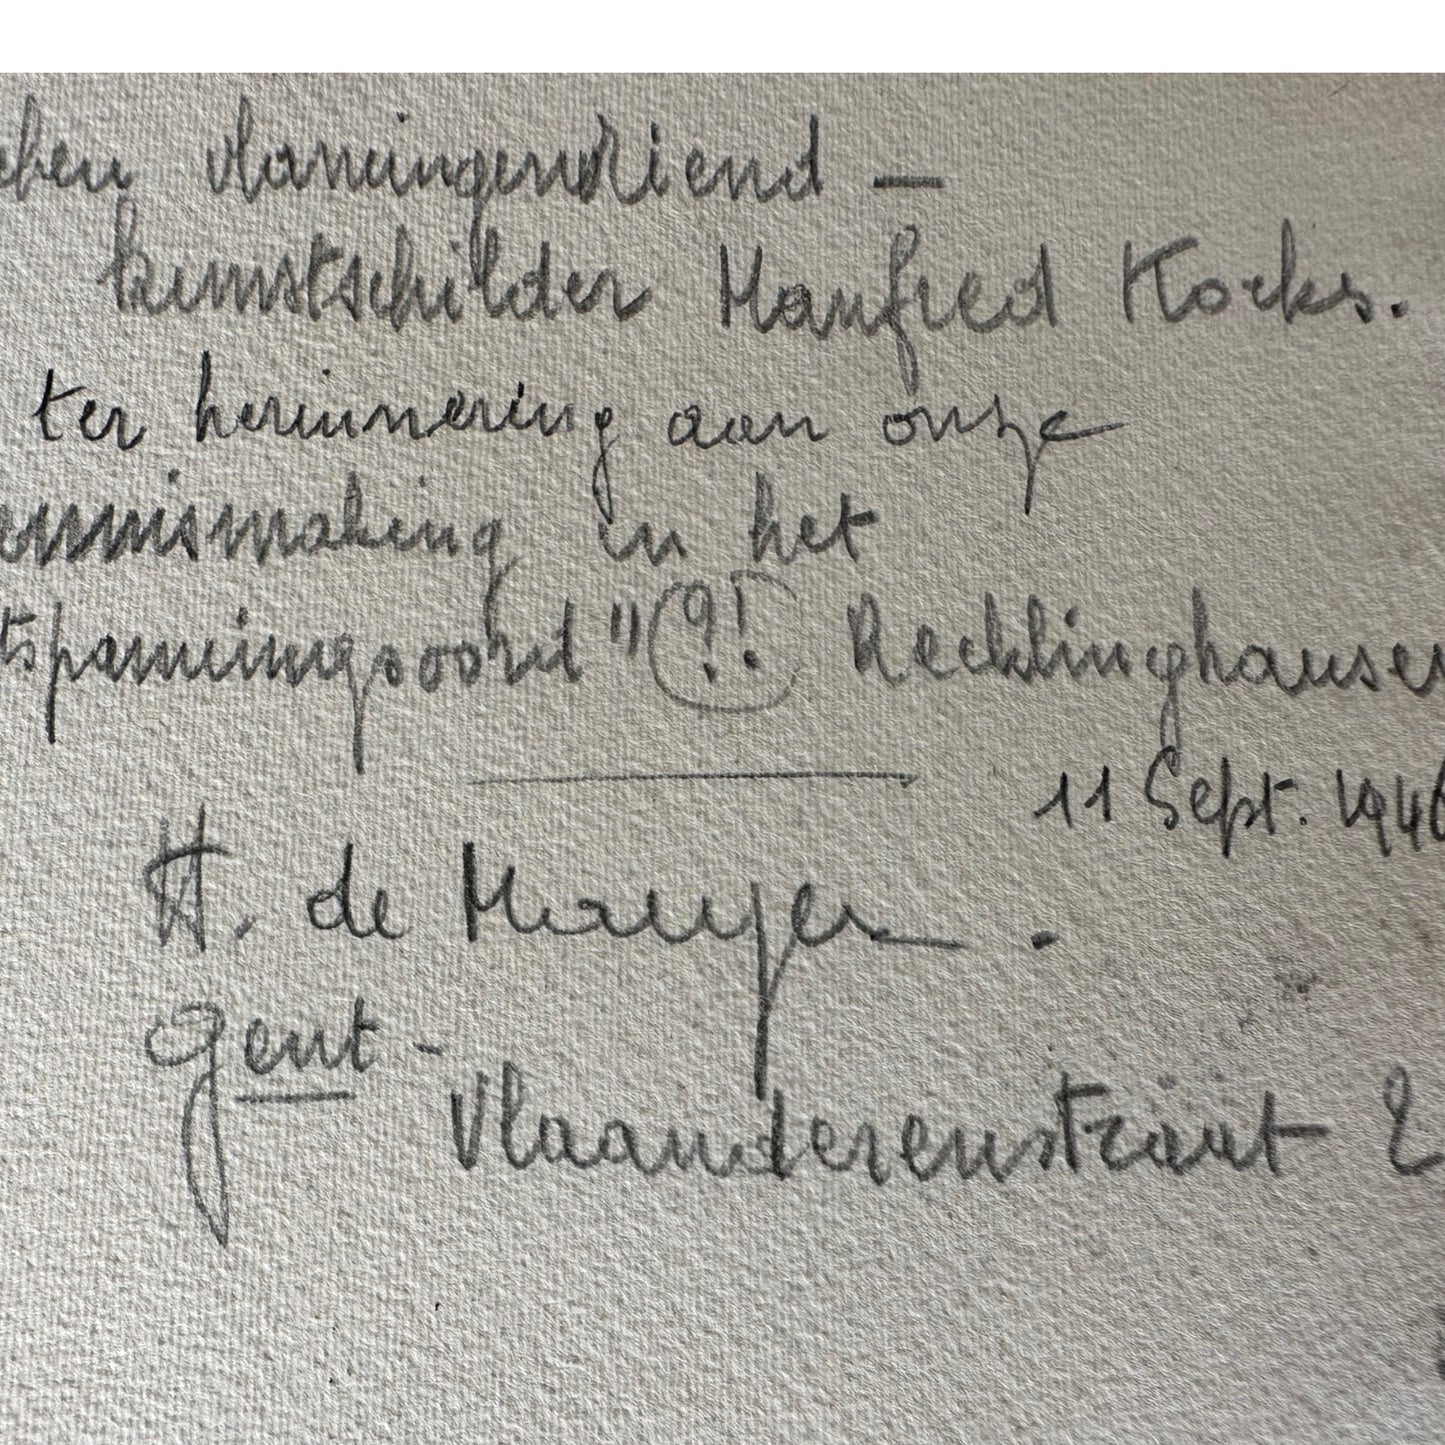 vlamingenvriend —
kunstschilder Manfred Kocks.
ter herinnering aan onze
ennismaking in het
tspanningsoord" ?! Recklinghausen
11 Sept. 1946
H. de Mauyer .
Gent -
Vlaanderenstraat 2